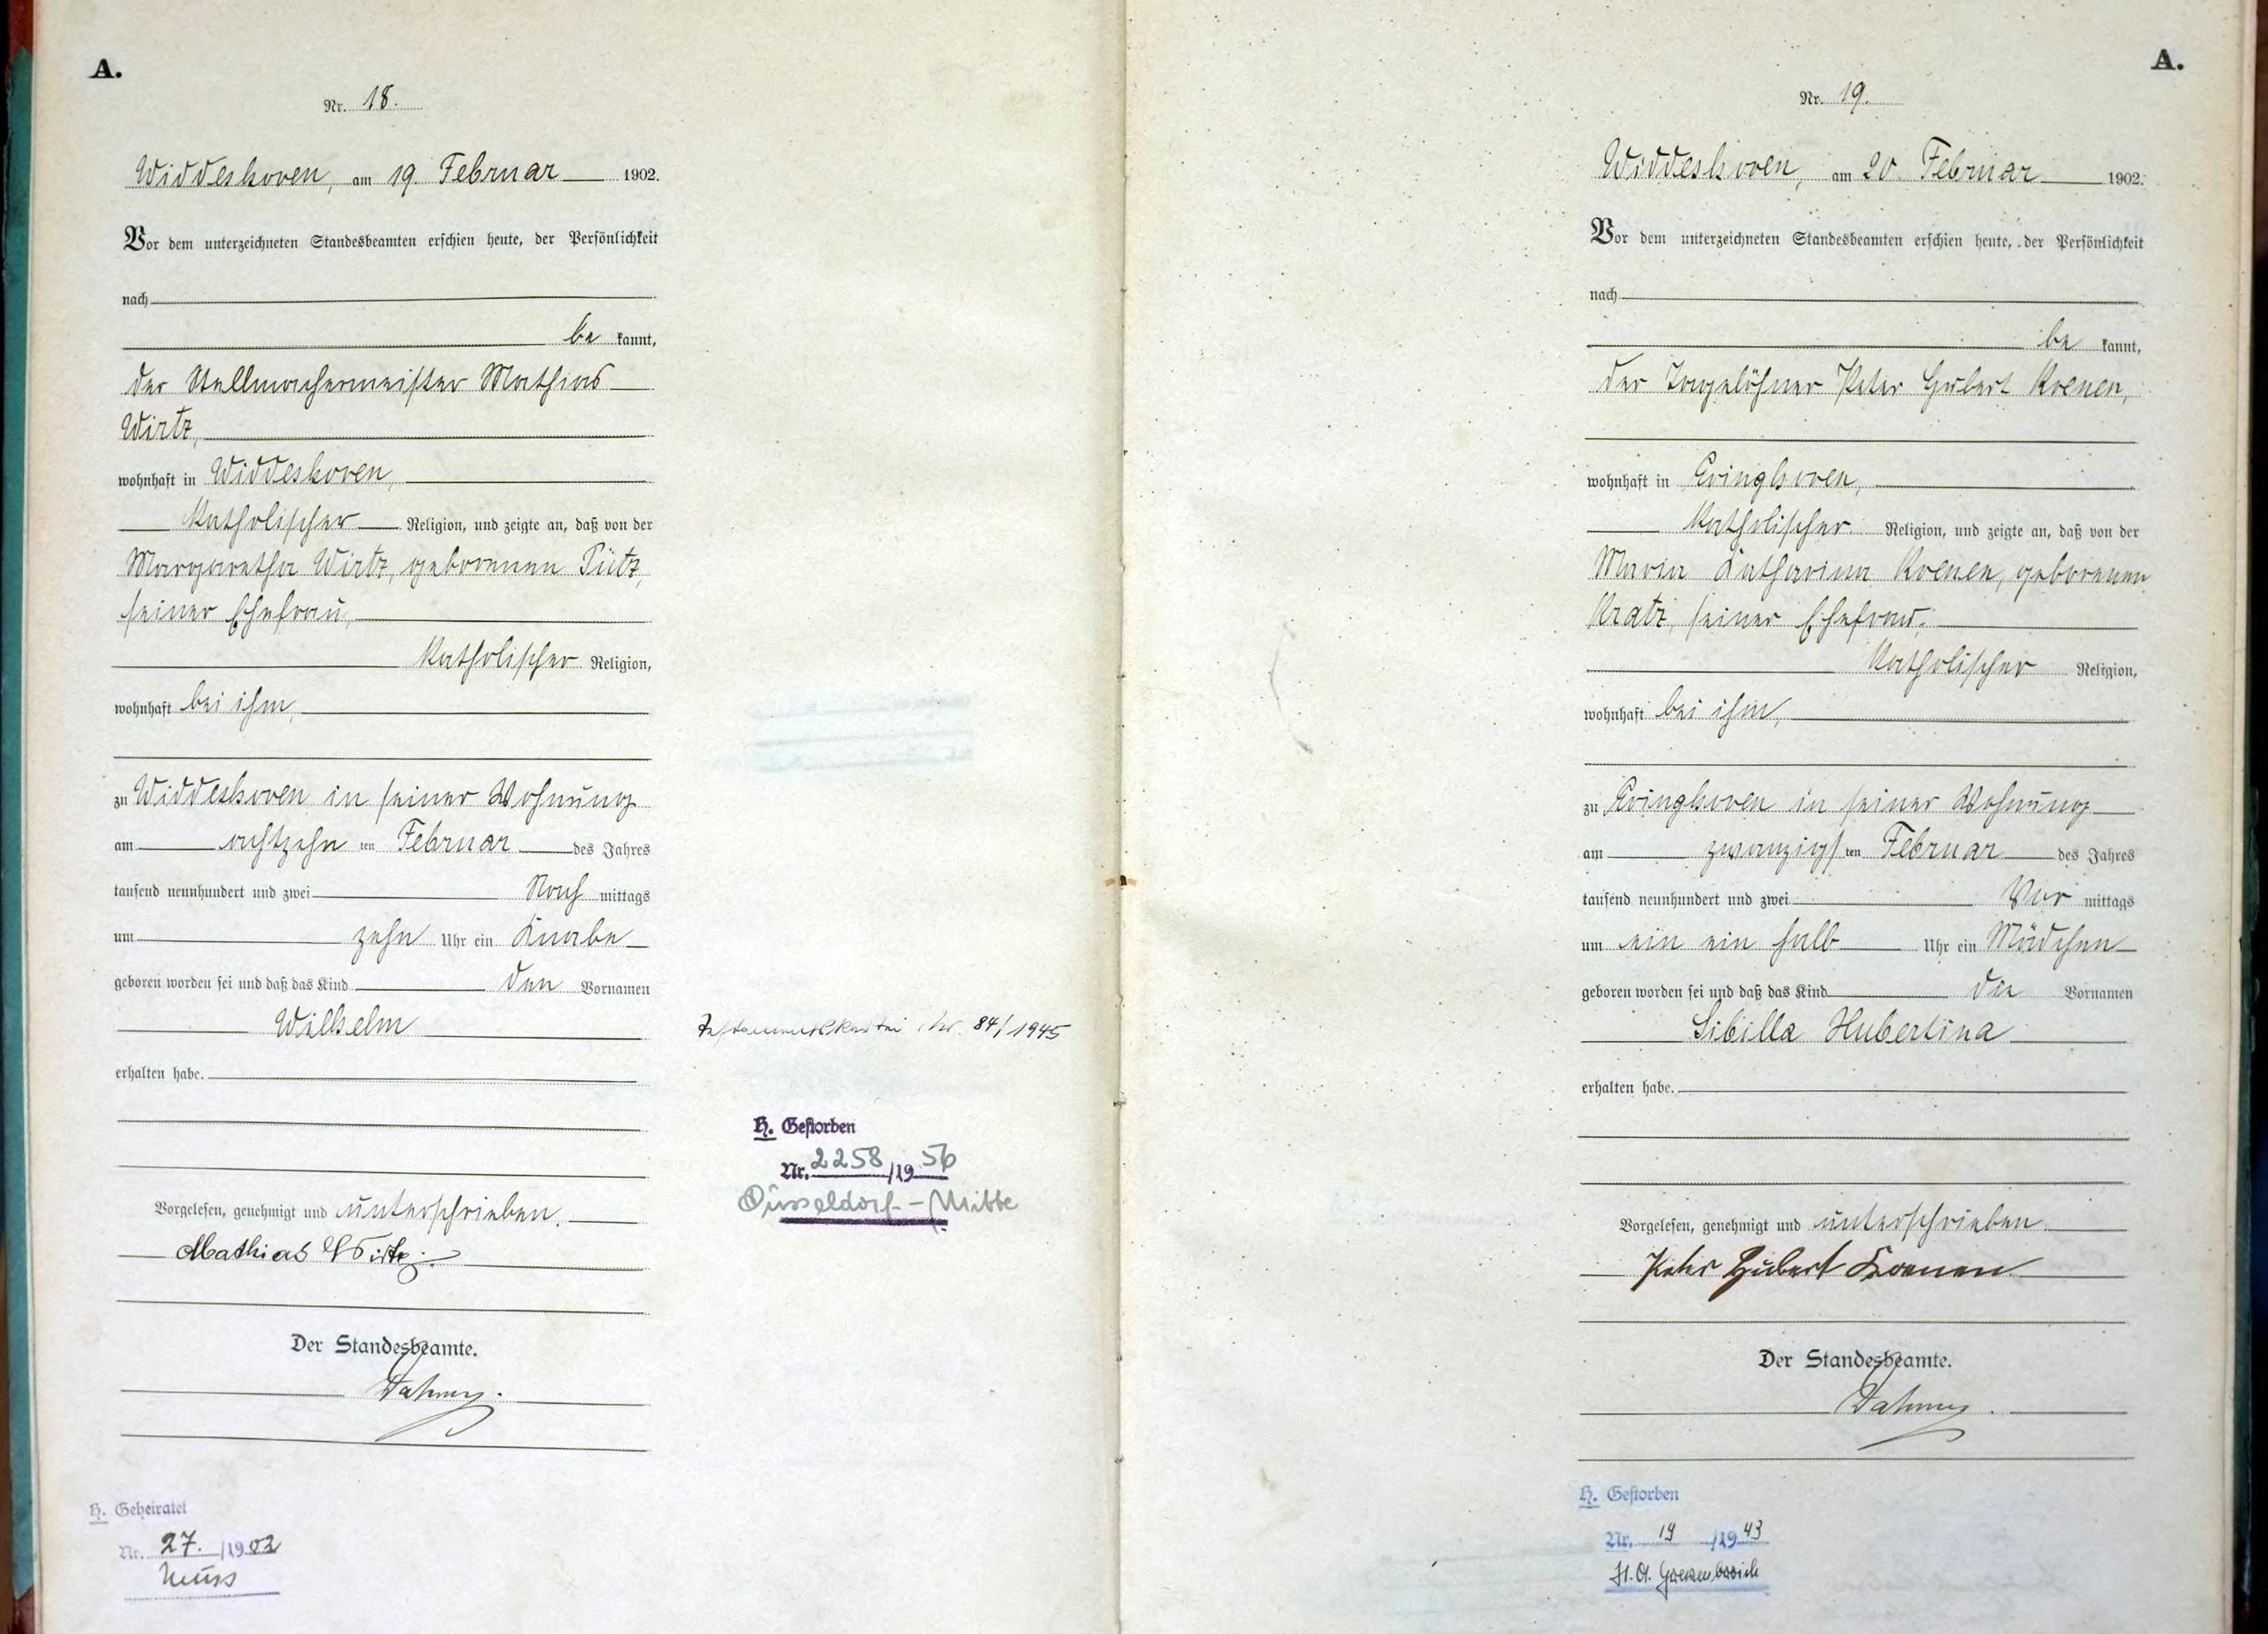 A.
Nr. 18.
Widdeshoven, am 19. Februar 1902.
Vor dem unterzeichneten Standesbeamten erschien heute, der Persönlichkeit
nach
be kannt,
der Stellmachermeister Mathias
Wirtz,
wohnhaft in Widdeshoven,
katholischer Religion, und zeigte an, daß von der
Margaretha Wirtz, geborenen Pütz,
seiner Ehefrau,
katholischer Religion,
wohnhaft bei ihm,
zu Widdeshoven in seiner Wohnung
am achtzehn ten Februar des Jahres
tausend neunhundert und zwei Nach mittags
um zehn Uhr ein Knabe
geboren worden sei und daß das Kind den Vornamen
Wilhelm
erhalten habe.
Vorgelesen, genehmigt und unterschrieben.
Mathias Wirtz.
Der Standesbeamte.
H. Geheiratet
Nr. 27. /19
Neuss
Testamentskartei Nr. 84/1945
H. Gestorben
Nr. 2258/19 56
Düsseldorf-Mitte
A.
Nr. 19.
Widdeshoven, am 20. Februar 1902.
Vor dem unterzeichneten Standesbeamten erschien heute, der Persönlichkeit
nach
be kannt,
der Tagelöhner Peter Hubert Koenen,
wohnhaft in Evinghoven,
katholischer Religion, und zeigte an, daß von der
Maria Katharina Koenen, geborenen
Kratz, seiner Ehefrau,
katholischer Religion,
wohnhaft bei ihm,
zu Evinghoven in seiner Wohnung
am zwanzigs ten Februar des Jahres
tausend neunhundert und zwei Vor mittags
um ein ein halb Uhr ein Mädchen
geboren worden sei und daß das Kind die Vornamen
Sibilla Hubertina
erhalten habe.
Vorgelesen, genehmigt und unterschrieben.
Peter Hubert Koenen
Der Standesbeamte.
H. Gestorben
Nr. 19 /19 43